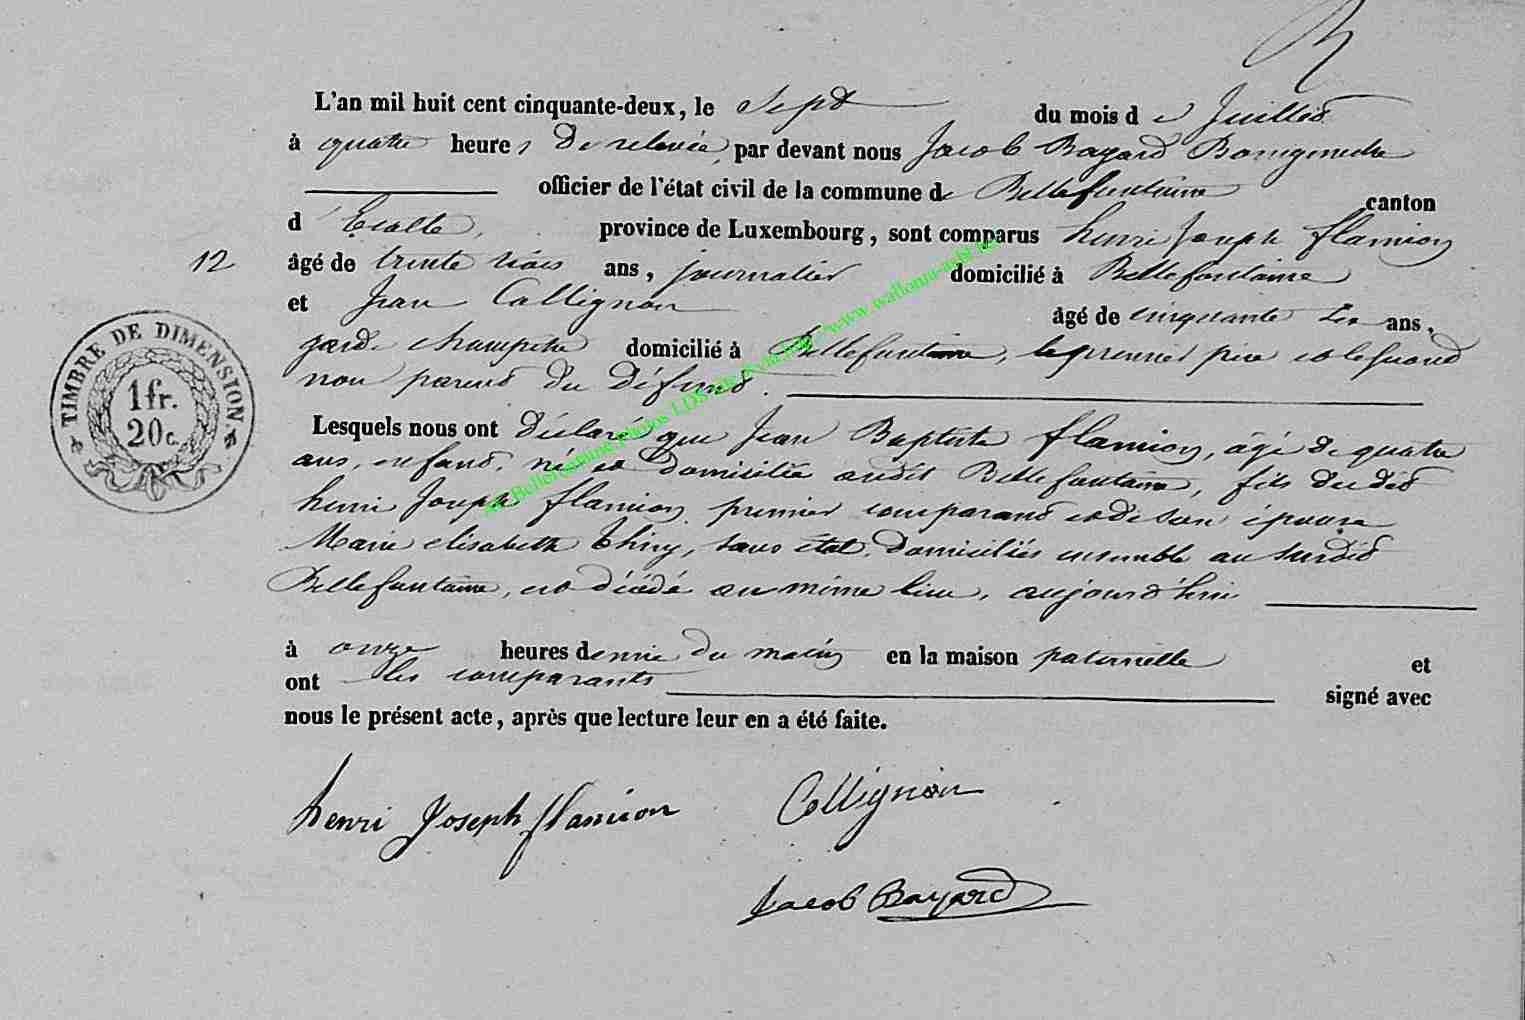 L'an mil huit cent cinquante-deux, le Sept du mois de Juillet
à quatre heures de relevée, par devant nous Jacob Bayard Bourgmestre
officier de l'état civil de la commune de Bellefontaine canton
d'Etalle, province de Luxembourg, sont comparus henri Joseph flamion
12 âgé de trente trois ans, journalier domicilié à Bellefontaine
et Jean Collignon âgé de cinquante ans,
garde champetre domicilié à Bellefontaine, le premier père et le second
non parent du défunt.
TIMBRE DE DIMENSION
1 fr.
20 c.
Lesquels nous ont déclaré que Jean Baptiste flamion, âgé de quatre
ans, enfant, né et domicilié audit Bellefontaine, fils du dit
henri Joseph flamion premier comparant et de son épouse
Marie elisabeth Thiry, sans état, domiciliés ensemble au susdit
Bellefontaine, est décédé au même lieu, aujourd'hui
à onze heures demie du matin en la maison paternelle et
ont les comparants signé avec
nous le présent acte, après que lecture leur en a été faite.
henri Joseph flamion Collignon
Jacob Bayard